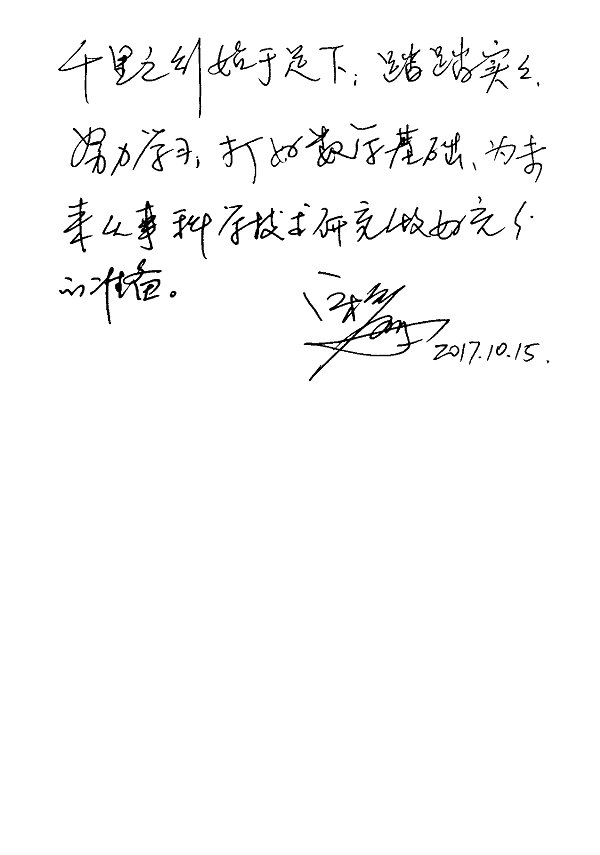 千里之行始于足下；踏踏实实、
努力学习，打好数学基础、为未
来从事科学技术研究做好充分
的准备。
2017.10.15.